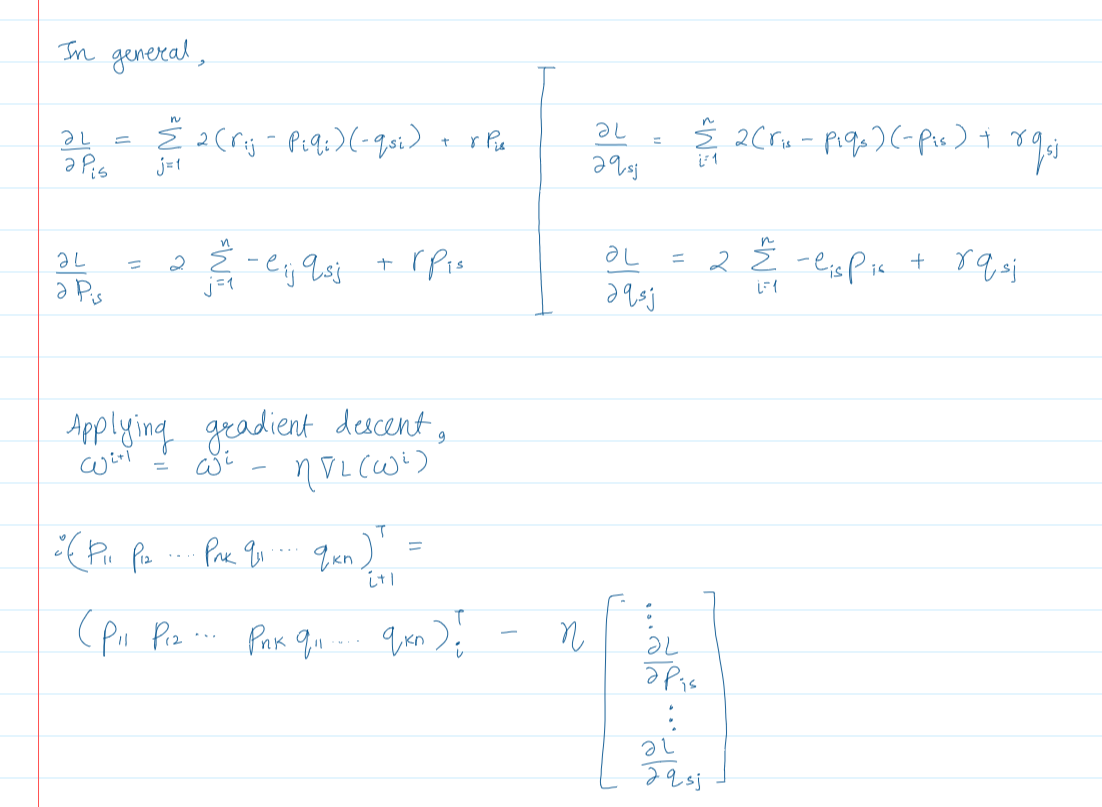 In general,
∂L/∂Pis = Σ_{j=1}^{n} 2(rij - Piqi)(-qsi) + rPis
∂L/∂Pis = 2 Σ_{j=1}^{n} -eij qsj + rPis
∂L/∂qsj = Σ_{i=1}^{n} 2(ris - piqs)(-pis) + rqsj
∂L/∂qsj = 2 Σ_{i=1}^{n} -eis pis + rqsj
Applying gradient descent,
ω^{i+1} = ω^i - η∇L(ω^i)
∴(P11 P12 .... Pnk q11 .... qkn)^T_{i+1} =
(P11 P12 ... Pnk q11 .... qkn)^T_i - η [ ⋮ ∂L/∂Pis ⋮ ∂L/∂qsj ]